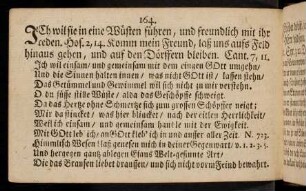 164.
Ich wil sie in eine Wüsten führen, und freundlich mit ihr
reden. Hos. 2, 14. Komm mein Freund, laß uns aufs Feld
hinaus gehen, und auf den Dörffern bleiben. Cant. 7, 11.
Ich wil einsam/ und gemeinsam mit dem einem GOtt umgehn/
Und die Sinnen halten innen/ was nicht GOtt ist/ lassen stehn/
Das Getümmel und Gewimmel wil sich nicht zu mir verstehn.
O du süsse stille Wüste/ alda das Geschöpffe schweigt/
Da das Hertze ohne Schmertze sich zum grossen Schöpffer neiget;
Wir da hier blicket/ nach der freyen Herrlichkeit/
Weil ich einsam/ und gemeinsam handle mit der Ewigkeit.
Mit Gott leb ich/ an Gott kleb' ich in und ausser aller Zeit. N. 723.
Himmlisch Wesen/ laß genesen mich in deiner Gegenwart/ v. 1. 2. 3. 5.
Und hergegen gantz ablegen Welt-gesinnte Art/
Die das Brausen liebet draussen/ und sich nicht vorm Feind bewahrt.